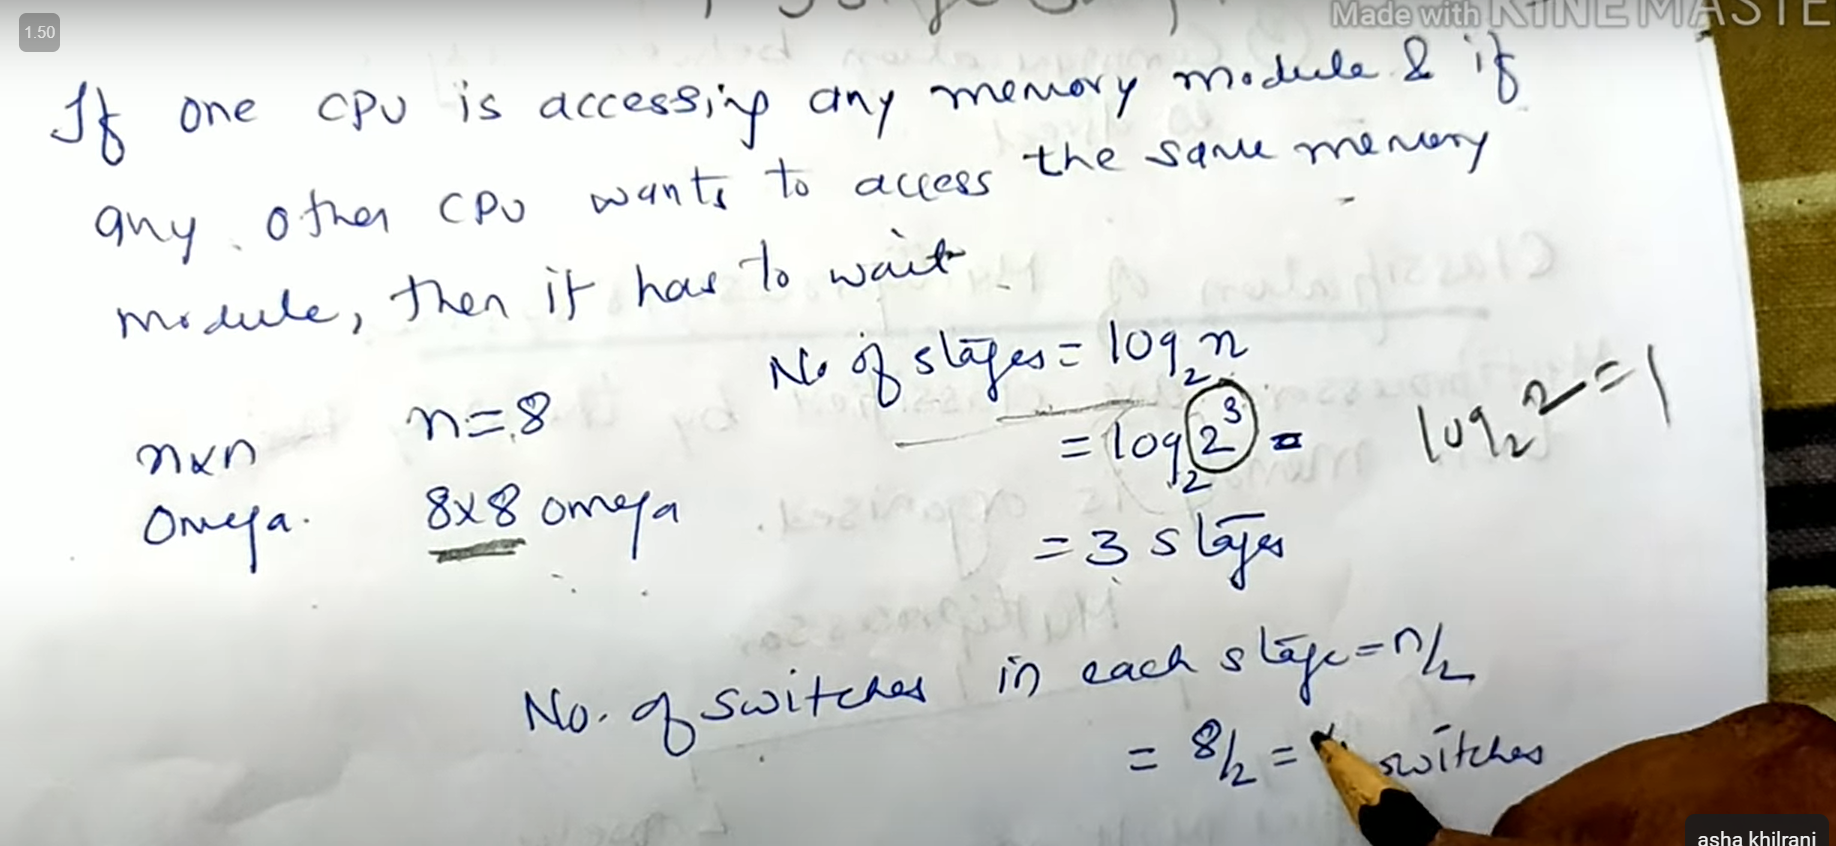 1.50
Made with KINEMASTE
If one CPU is accessing any memory module & if
any other CPU wants to access the same memory
module, then it has to wait
No of stages = log₂ n
n×n n=8
= log₂ 2³ =
log₂ 2 = 1
Omega. 8×8 omega
= 3 stages
No. of switches in each stage = n/2
= 8/2 = switches
asha khilrani